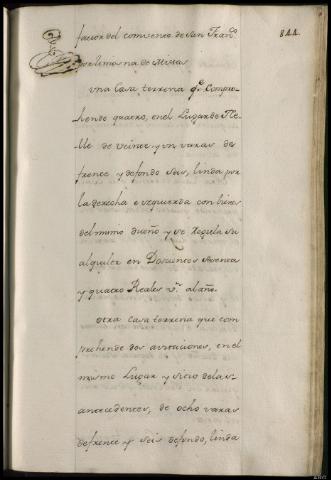 844
favor del convento de San Franco
por limosna de Misas
una Casa terrena qe. compre-
hende quarto, en el Lugar de
lle de veinte y un varas de
frente y de fondo seis, linda por
la derecha e izquierda con bienes
del mismo dueño y se regula su
alquiler en Doscientos sesenta
y quatro Reales vn. al año.
otra casa terrena que com
prehende dos avitaciones, en el
mismo Lugar y sitio de las
antecedentes, de ocho varas
de frente y seis de fondo, linda